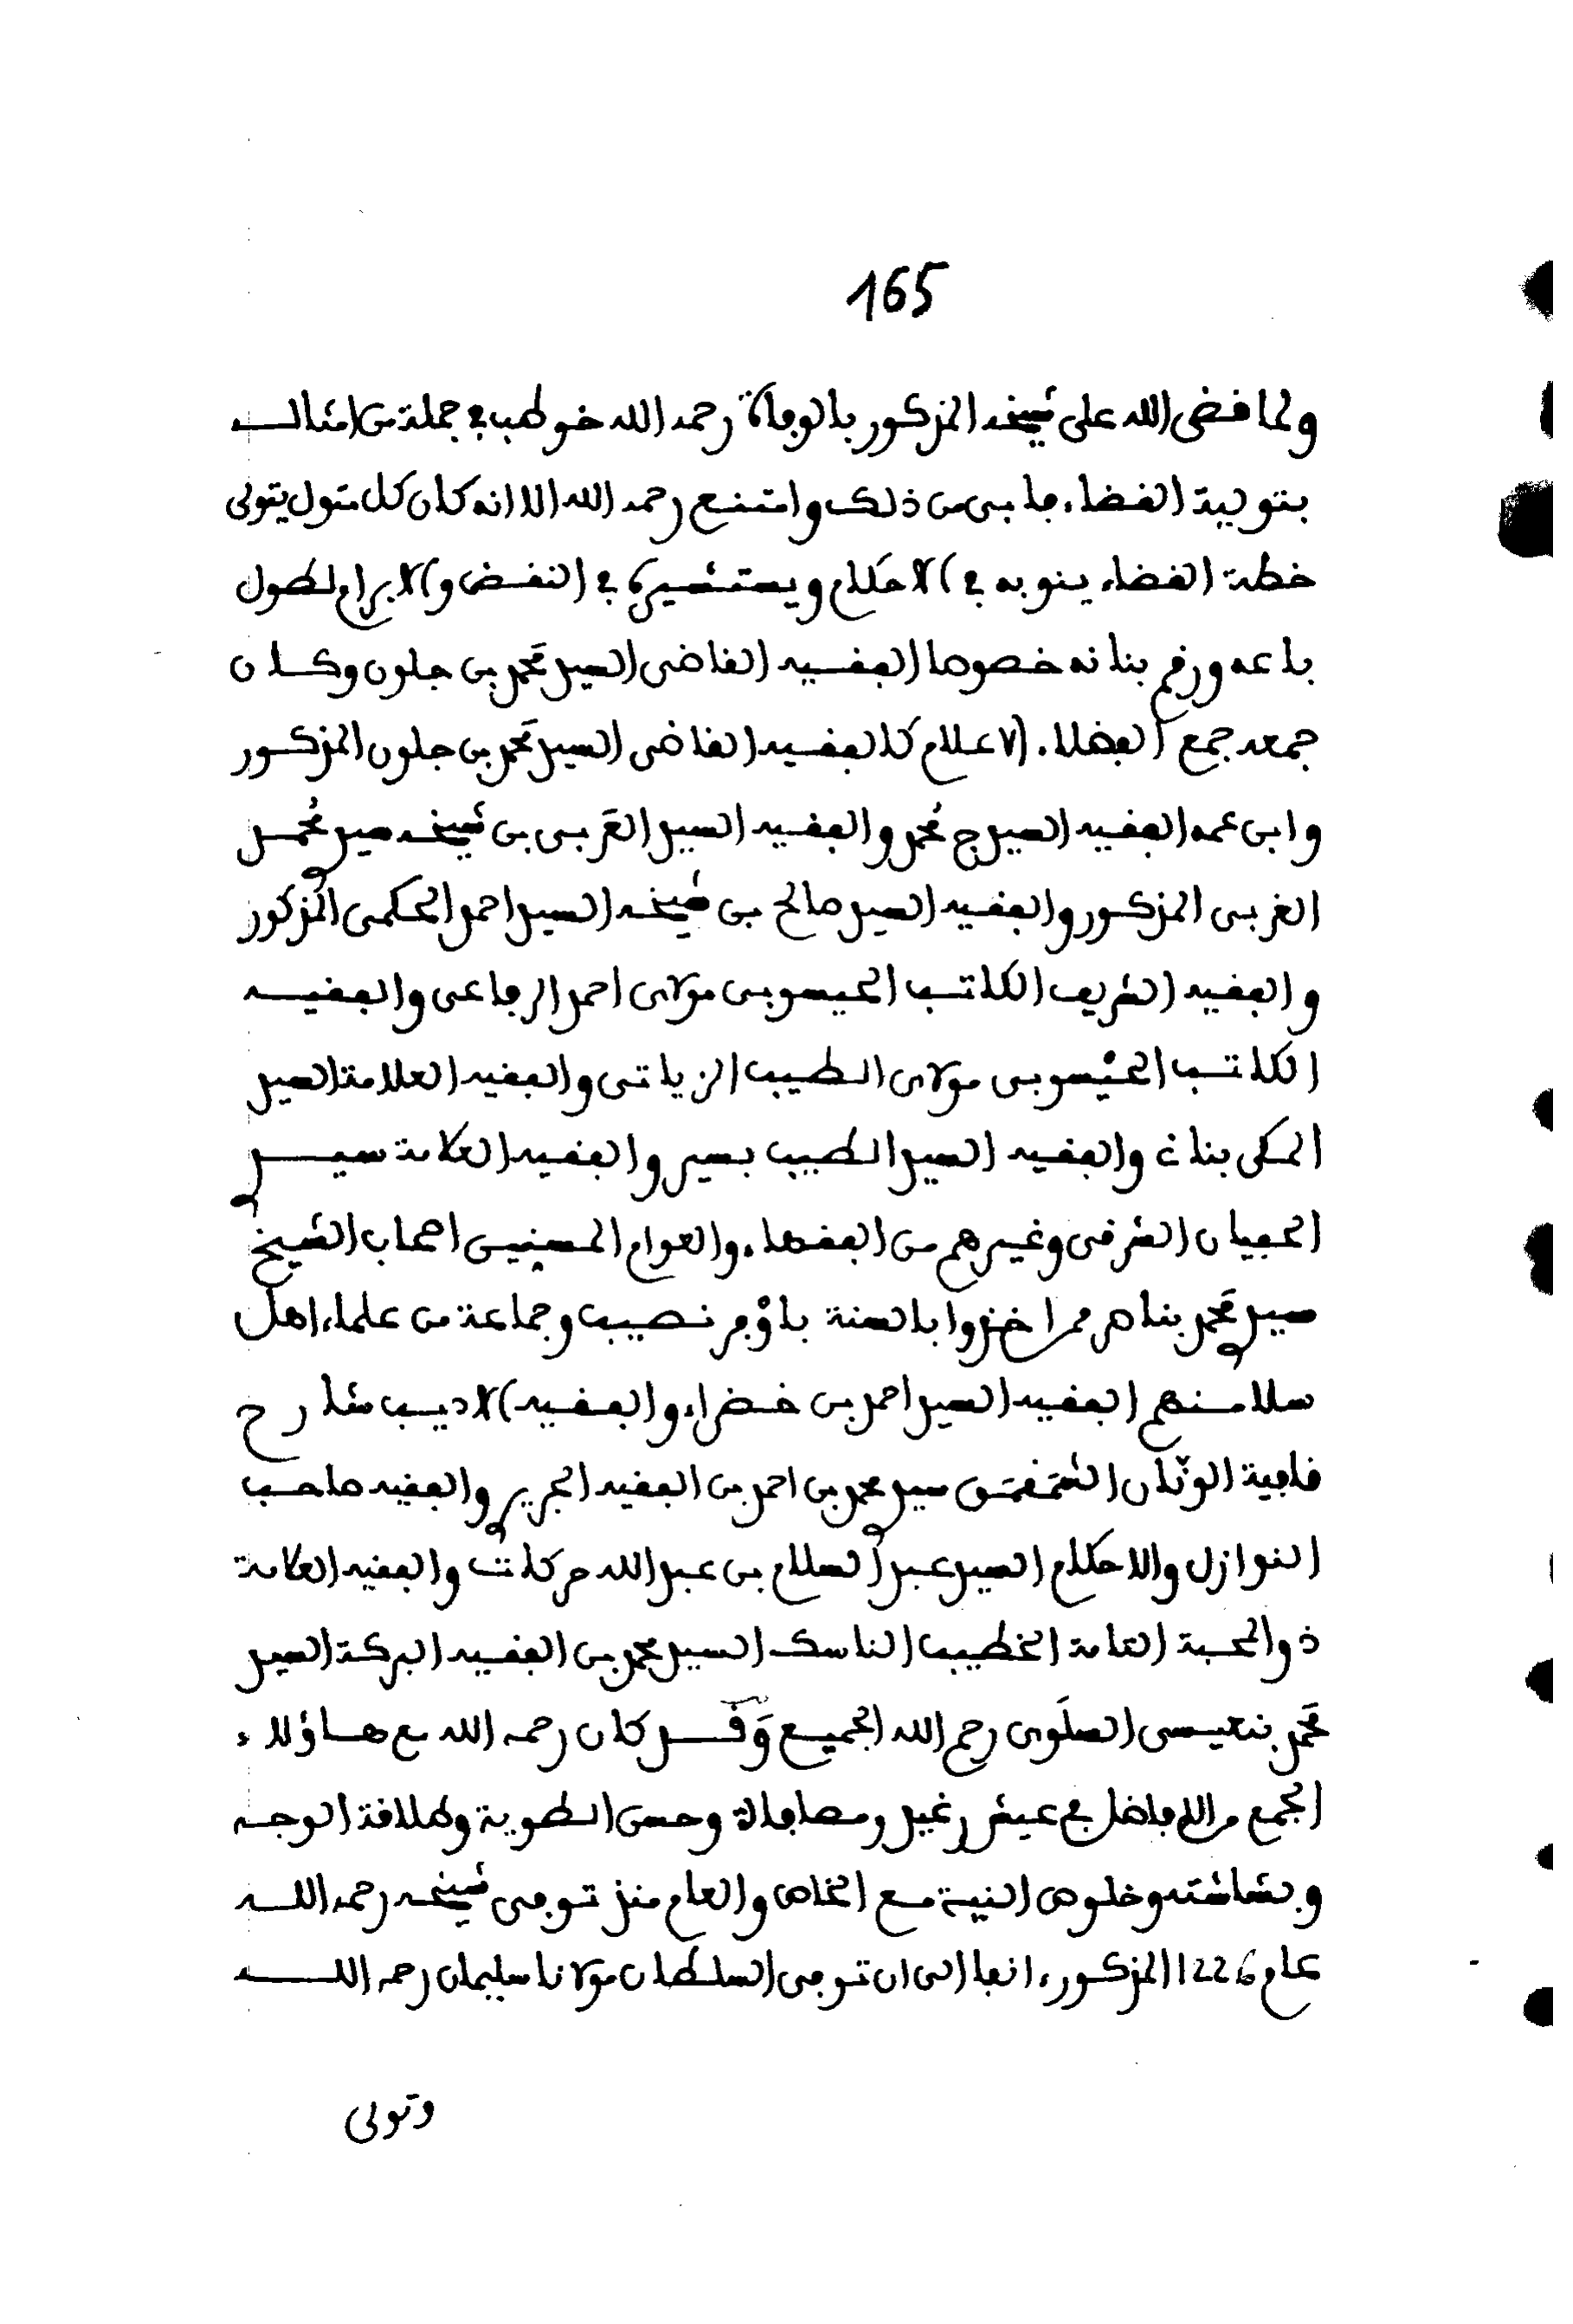 165
ولما قضى الله على شيخه المذكور بالوفاة رحمه الله خوطب في جملة من امثاله
بتولية القضاء فابى من ذلك وامتنع رحمه الله الا انه كان كل متول يتولى
خطة القضاء ينوبه في الاحكام ويستشيره في النقض والابرام لطول
باعه ورقم بنانه خصوصا الفقيه القاضي السيد محمد بن جلون وكان
جمعه جمع الفضلاء الاعلام كالفقيه القاضي السيد محمد بن جلون المذكور
وابن عمه الفقيه السيد ج محمد والفقيه السيد العربي بن شيخه سيدي محمد
الغربي المذكور والفقيه السيد صالح بن شيخه السيد احمد الحكمي المذكور
والفقيه الشريف الكاتب الحيسوبي مولاي احمد الرفاعي والفقيه
الكاتب الحيسوبي مولاي الطيب الزياتي والفقيه العلامة السيد
المكي بناني والفقيه السيد الطيب بسير والفقيه العلامة سيدي
الجيان الشرقي وغيرهم من الفقهاء والعوام المسنيين اصحاب الشيخ
سيدي محمد بناصر ممن اخذوا بالسنة باوفر نصيب وجماعة من علماء اهل
سلا منهم الفقيه السيد احمد بن خضراء والفقيه الاديب شارح
قافية الونان الشمقمق سيدي محمد بن احمد بن الفقيه الجريري والفقيه صاحب
النوازل والاحكام السيد عبد السلام بن عبد الله حركات والفقيه العلامة
ذو المحبة التامة الخطيب الناسك السيد محمد بن الفقيه البركة السيد
محمد بنعيسى السلوي رحم الله الجميع وقد كان رحمه الله مع هاؤلاء
الجمع من الافاضل في عيش رغيد ومصافاة وحسن الطوية وطلاقة الوجه
وبشاشته وخلوص النية مع الخاص والعام منذ توفى شيخه رحمه الله
عام 1226 المذكور انفا الى ان توفى السلطان مولانا سليمان رحمه الله
وتولى